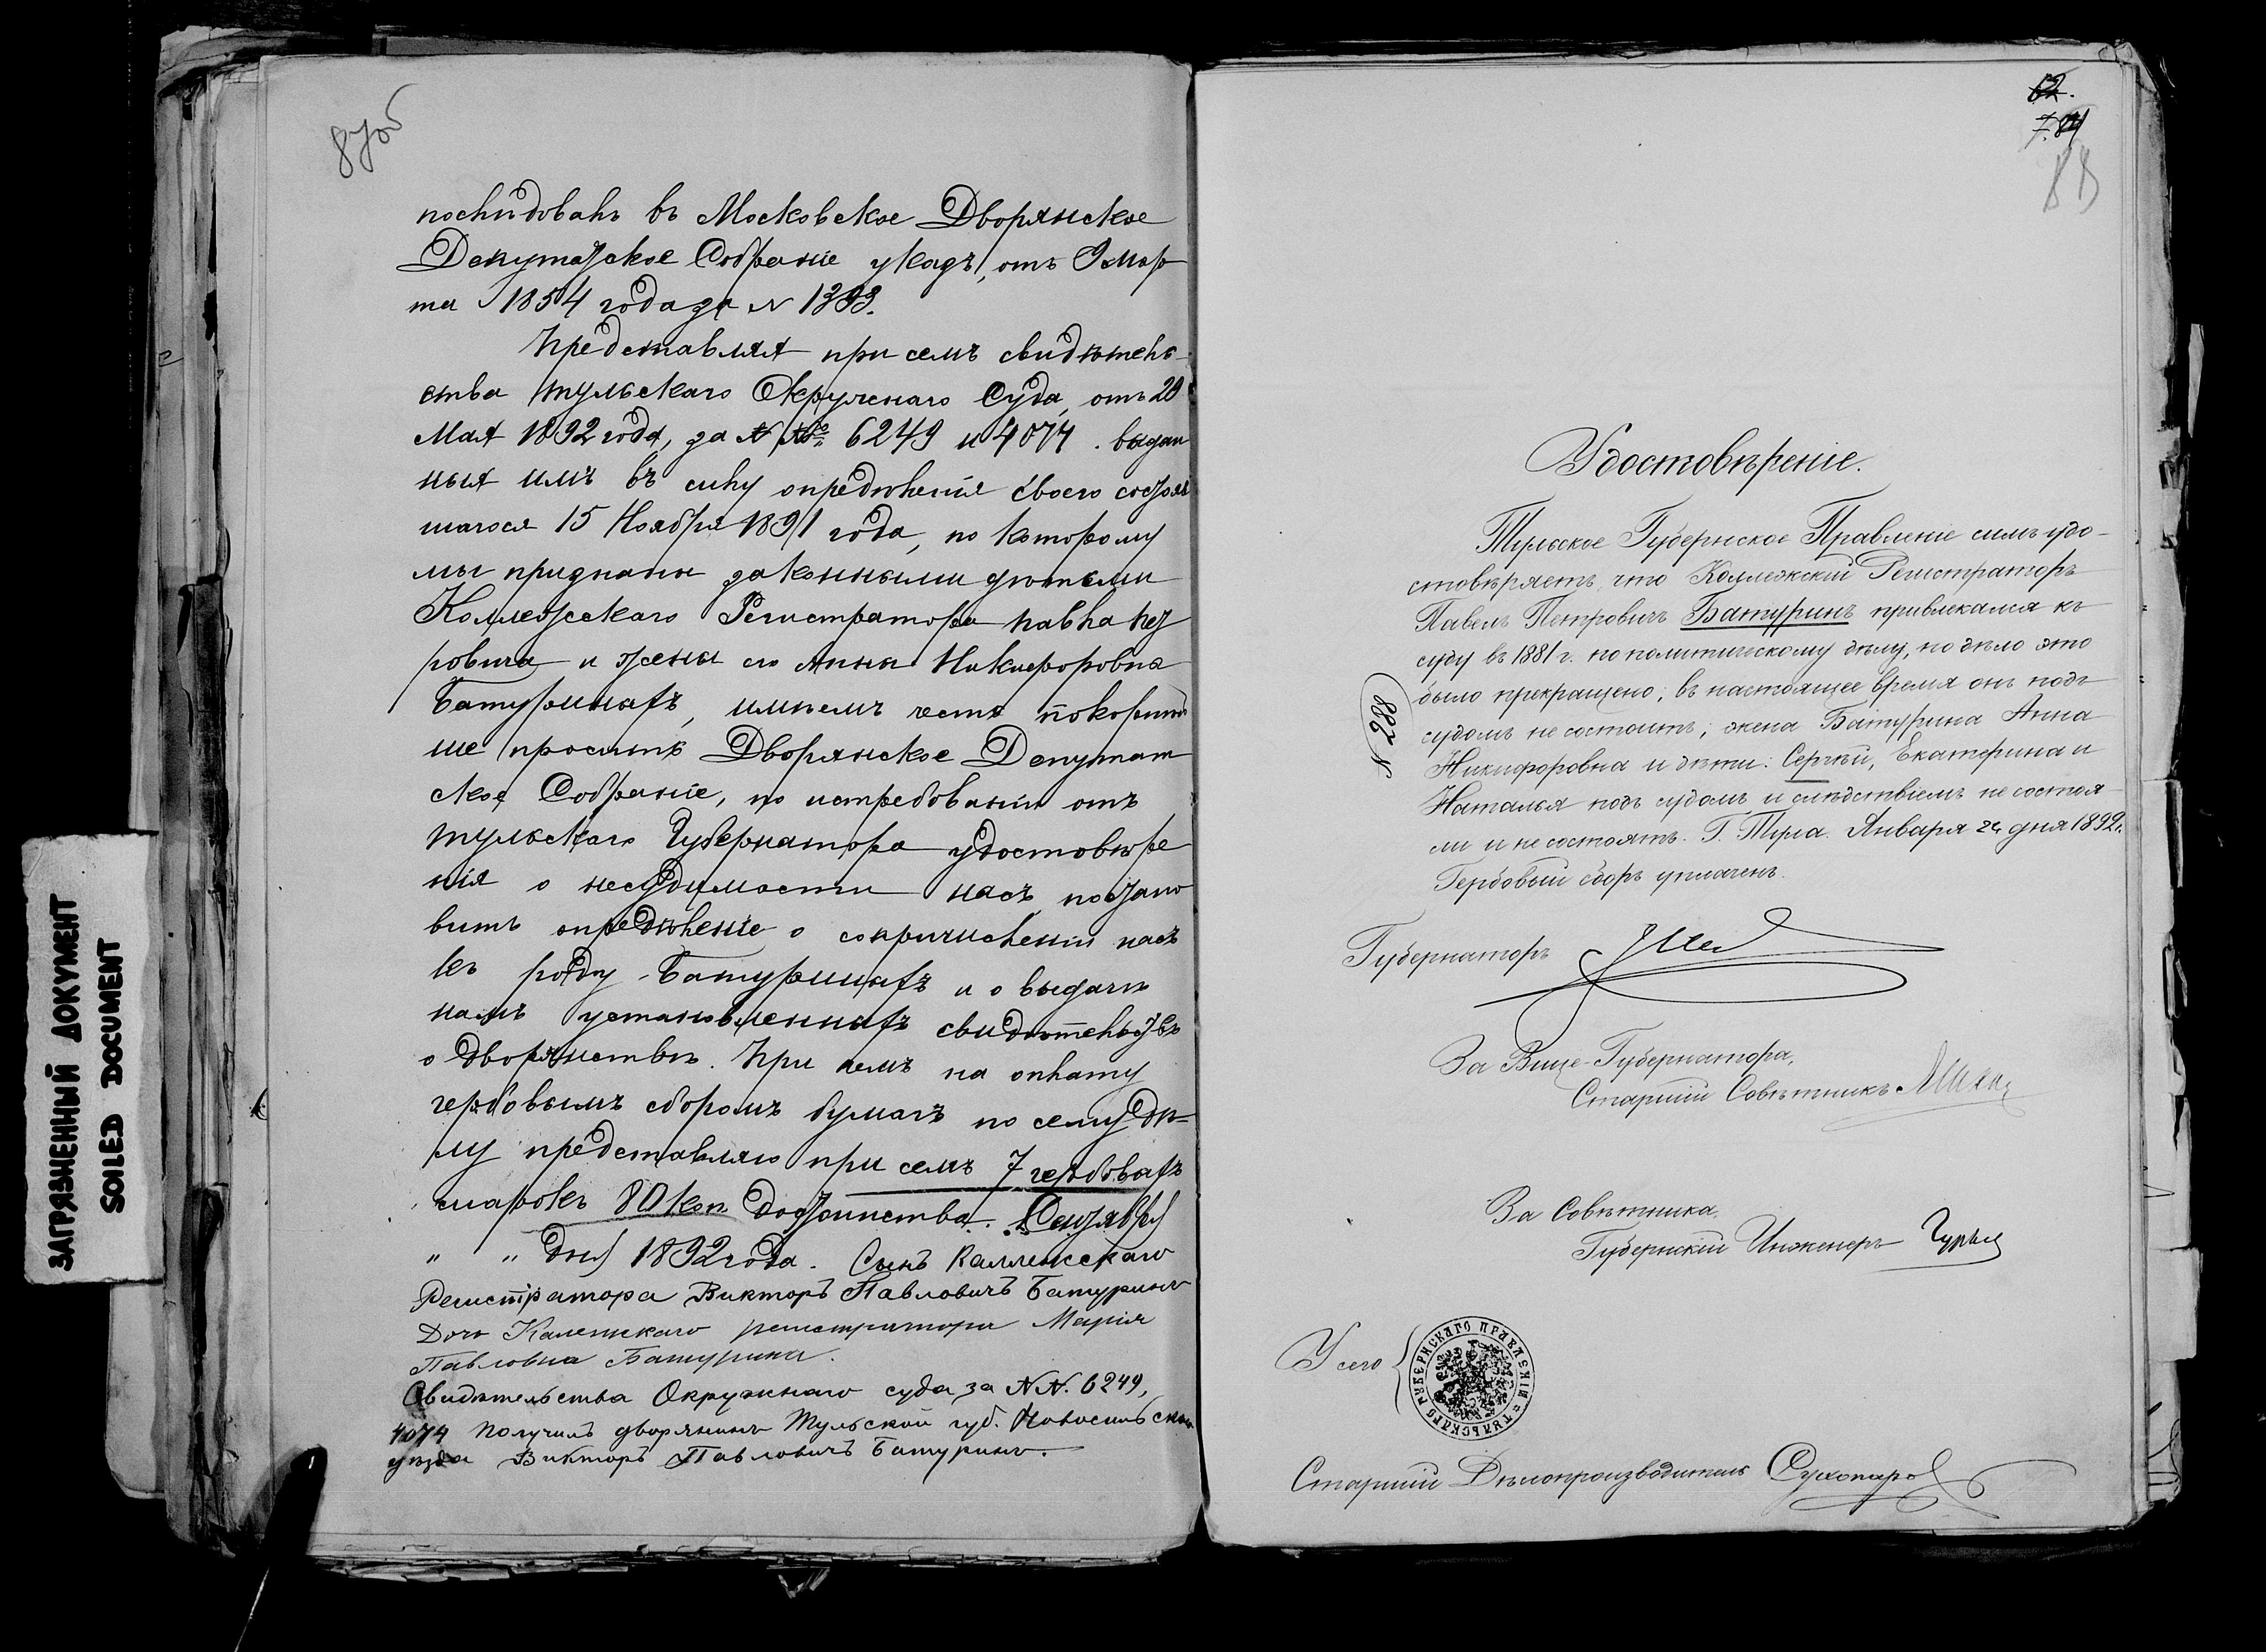 87об
послѣдовалъ въ Московское Дворянское
Депутатское Собраніе указъ, отъ 9 мар
та 1854 года за N 1393.
Представляя при семъ свидѣтель-
ства Тульскаго Окружнаго Суда, отъ 20
Мая 1892 года, за N №№ 6249 и 4074. выдан
ныя имъ въ силу опредѣленія своего состояв
шагося 15 Ноября 1891 года, по которому
мы признаны законными дѣтьми
Коллежскаго Регистратора Павла Пет
ровича и жены его Анны Никифоровны
Батуриныхъ, имѣемъ честь покорнѣй
ше просить Дворянское Депутат
ское Собраніе, по истребованіи отъ
Тульскаго Губернатора удостовѣре
нія о несудимости насъ постано
вить опредѣленіе о сопричисленіи насъ
къ роду Батуриныхъ и о выдачѣ
намъ установленныхъ свидѣтельствъ
о дворянствѣ. При чемъ на оплату
гербовымъ сборомъ бумагъ по сему дѣ=
лу представляю при семъ 7 гербовыхъ
марокъ 80 коп достоинства. Сентября
" " дня 1892 года. Сынъ Коллежскаго
Регистратора Викторъ Павловичъ Батуринъ
Дочь Колежкаго регистратора Марія
Павловна Батурина.
Свидѣтельства Окружнаго суда за NN. 6249,
4074 получилъ дворянинъ Тульской губ. Новосильскаго
уѣзда Викторъ Павловичъ Батуринъ.
ЗАГРЯЗНЕННЫЙ ДОКУМЕНТ
SOILED DOCUMENT
88
Удостовѣреніе.
Тульское Губернское Правленіе симъ удо-
стовѣряетъ, что Коллежскій Регистраторъ
Павелъ Петровичъ Батуринъ привлекался къ
суду въ 1881 г. по политическому дѣлу, но дѣло это
было прекращено; въ настоящее время онъ подъ
судомъ не состоитъ; жена Батурина Анна
Никифоровна и дѣти: Сергѣй, Екатерина и
Наталья подъ судомъ и слѣдствіемъ не состоя-
ли и не состоятъ. Г. Тула. Января 24 дня 1892 г.
Гербовый сборъ уплаченъ.
N 288
Губернаторъ
За Вице-Губернатора,
Старшій Совѣтникъ
За Совѣтника
Губернскій Инженеръ
У сего
ТУЛЬСКАГО ГУБЕРНСКАГО ПРАВЛЕНІЯ
Старшій Дѣлопроизводитель